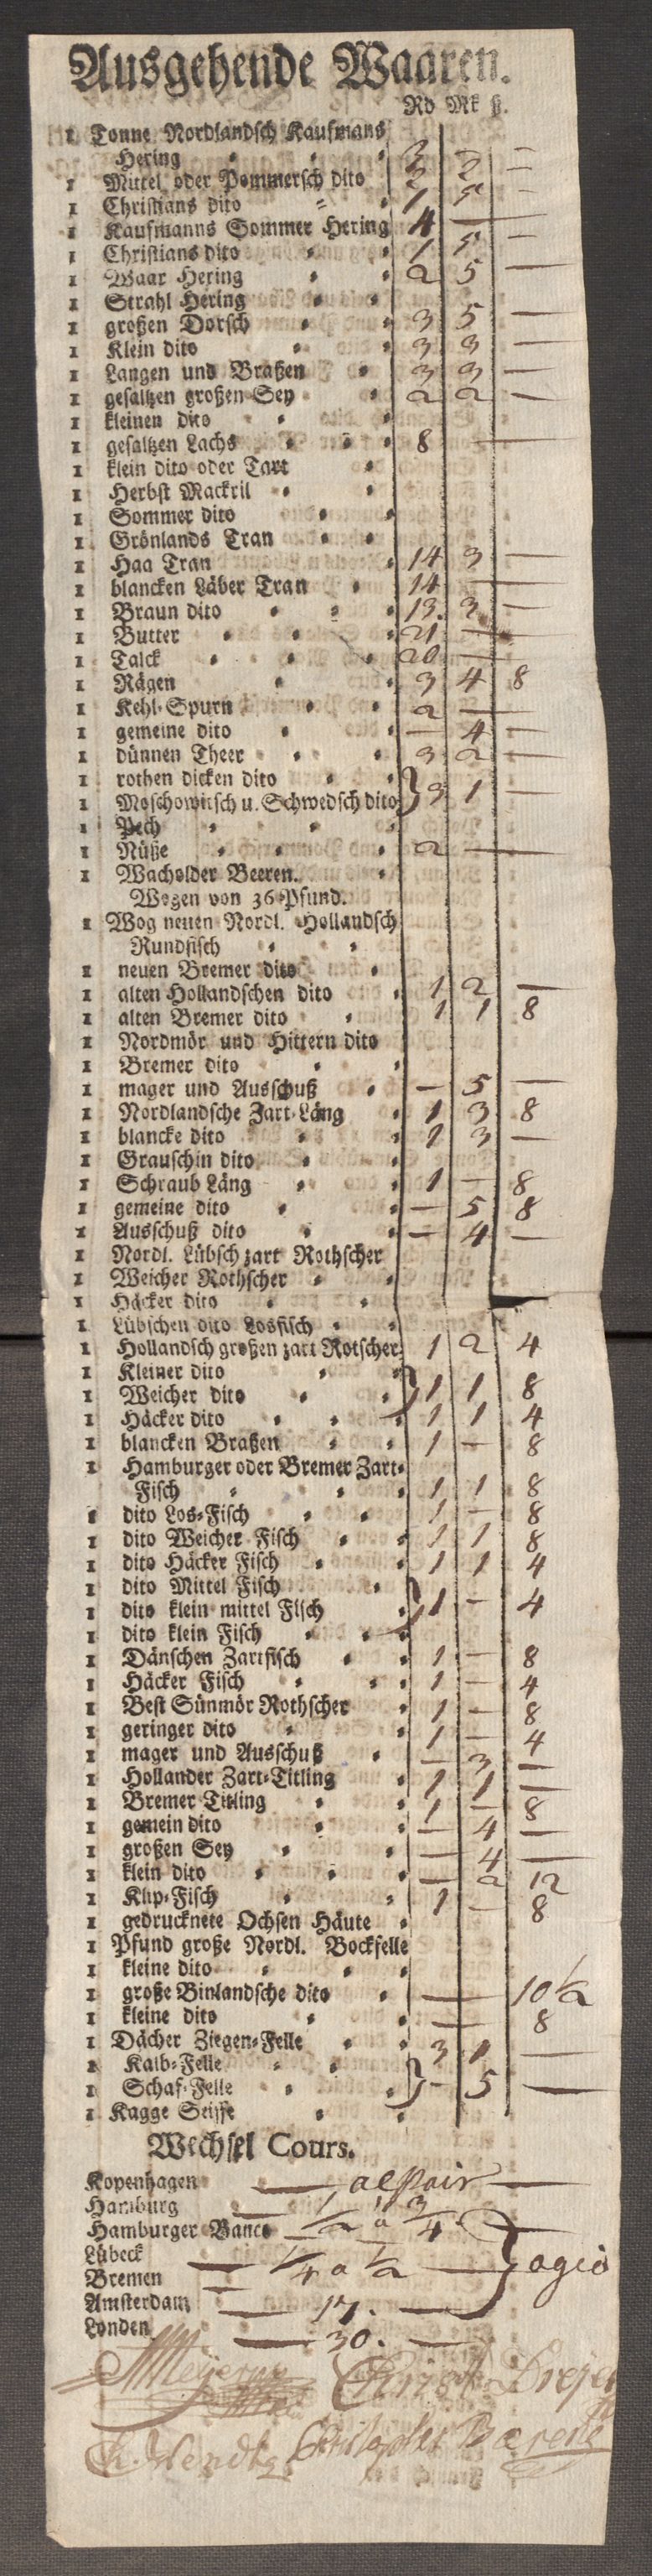 Ausgehende Waaren.
Rd Mk ß.
1 Tonne Nordlandsch Kaufmans
Hering 3 2 —
1 Mittel oder Pommersch dito
1 Christians dito 1 5 —
1 Kaufmanns Sommer Hering 4 —
1 Christians dito 1 5 —
1 Waar Hering 2 5 —
1 Strahl Hering
1 großen Dorsch 3 5 —
1 Klein dito 3 3 —
1 Langen und Braßen 3 3 —
1 gesaltzen großen Sey 2 2 —
1 kleinen dito
1 gesaltzen Lachs 8 —
1 klein dito oder Tart
1 Herbst Mackril
1 Sommer dito
1 Grönlands Tran
1 Haa Tran 14 3 —
1 blancken Läber Tran 14 —
1 Braun dito 13 3 —
1 Butter 21 —
1 Talck 20 —
1 Rägen 3 4 8
1 Kehl-Spurn 2 —
1 gemeine dito — 4 —
1 dünnen Theer 3 2 —
1 rothen dicken dito
1 Moschowitsch u. Schwedsch dito } 3 1 —
1 Pech
1 Nüße 2 —
1 Wacholder Beeren.
Wogen von 36 Pfund.
1 Wog neuen Nordl. Hollandsch
Rundfisch
1 neuen Bremer dito
1 alten Hollandschen dito 1 2 —
1 alten Bremer dito 1 1 8
1 Nordmör und Hittern dito
1 Bremer dito
1 mager und Ausschuß — 5 —
1 Nordlandsche Zart-Läng 1 3 8
1 blancke dito 1 3 —
1 Grauschin dito
1 Schraub Läng 1 — 8
1 gemeine dito — 5 8
1 Ausschuß dito — 4 —
1 Nordl. Lübsch zart Rothscher
1 Weicher Rothscher
1 Häcker dito
1 Lübschen dito Losfisch
1 Hollandsch großen zart Rotscher 1 2 4
1 Kleiner dito
1 Weicher dito } 1 1 8
1 Häcker dito 1 1 4
1 blancken Braßen 1 — 8
1 Hamburger oder Bremer Zart-
Fisch 1 1 8
1 dito Los-Fisch 1 — 8
1 dito Weicher Fisch 1 1 8
1 dito Häcker Fisch 1 1 4
1 dito Mittel Fisch
1 dito klein mittel Fisch } 1 — 4
1 dito klein Fisch
1 Dänschen Zartfisch 1 — 8
1 Häcker Fisch 1 — 4
1 Best Sünmör Rothscher 1 — 8
1 geringer dito 1 — 4
1 mager und Ausschuß — 3 —
1 Hollander Zart-Titling 1 1 —
1 Bremer Titling 1 — 8
1 gemein dito — 4 —
1 großen Sey — 4 —
1 klein dito — 2 12
1 Klip-Fisch 1 — 8
1 gedrucknete Ochsen Häute
1 Pfund große Nordl. Bockfelle
1 kleine dito
1 große Binlandsche dito — 10 1/2
1 kleine dito — 8
1 Dächer Ziegen-Felle 3 1 —
1 Kalb-Felle
1 Schaf-Felle } — 5 —
1 Kagge Seiffe
Wechsel Cours.
Kopenhagen — alpair —
Hamburg
Hamburger Banco — 1/2 a 3/4
Lübeck
Bremen — 1/4 a 1/2 — } agio
Amsterdam — 17. —
Londen — 30. —
Meyer Christ Dreyer
Wendt Christopher